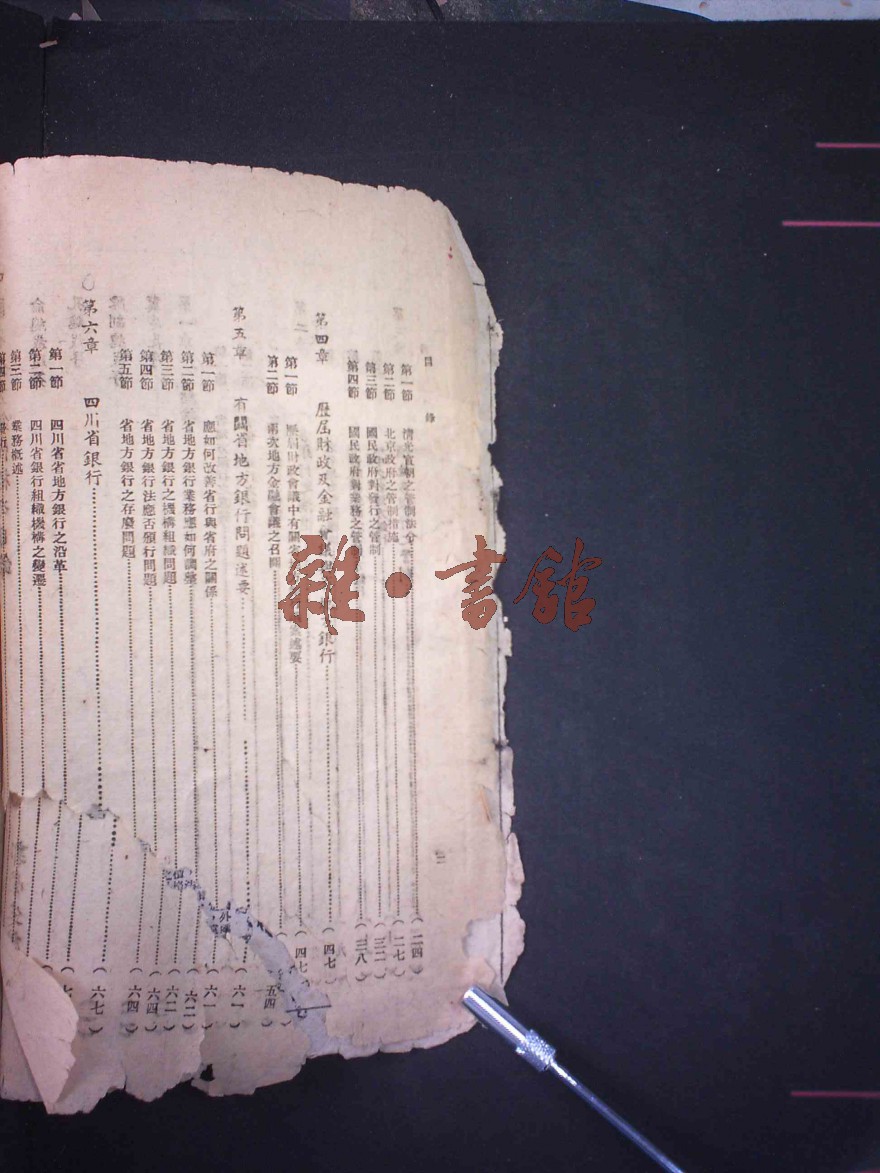 目錄
第一節
第二節 北京政府之管制措施（二七）
第三節 國民政府對發行之管制（三二）
第四節 國民政府對業務之管制（三八）
第四章 歷屆財政及金融會議 銀行（四七）
第一節 歷屆財政會議中有關省 述要（四七）
第二節 兩次地方金融會議之召開（五四）
第五章 有關省地方銀行問題述要（六一）
第一節 應如何改善省行與省府之關係（六一）
第二節 省地方銀行業務應如何調整（六二）
第三節 省地方銀行之機構組織問題（六二）
第四節 省地方銀行法應否頒行問題（六四）
第五節 省地方銀行之存廢問題（六四）
第六章 四川省銀行（六七）
第一節 四川省省地方銀行之沿革
第二節 四川省銀行組織機構之變遷
第三節 業務概述
第四節
雜·書館